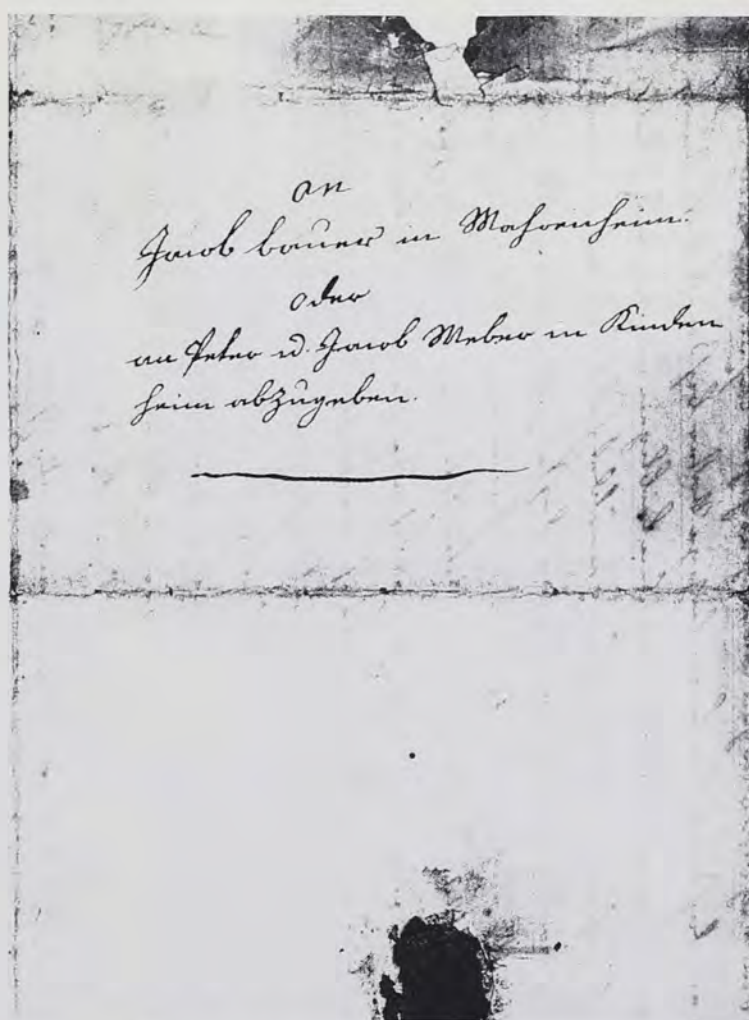 an
Jacob bauer in Mahrenheim.
oder
an Peter u. Jacob Weber in Kinden
heim abzugeben.